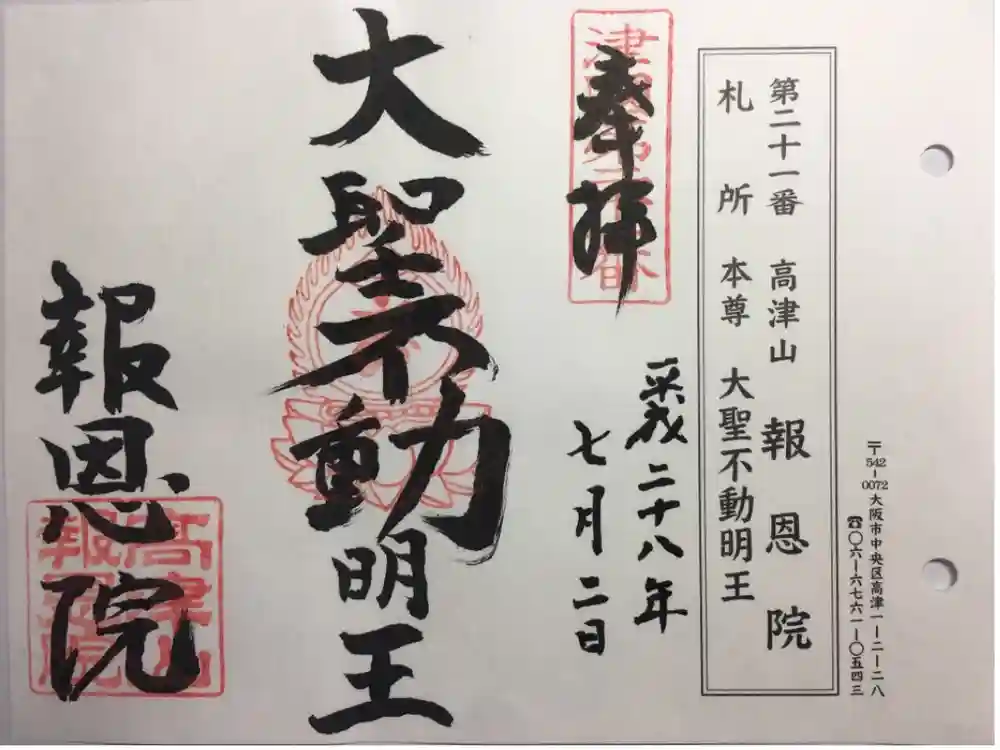 〒542-0072大阪市中央区高津一ー二ー二八
☎〇六ー六七六一ー〇五四三
第二十一番 高津山 報恩院
札所 本尊 大聖不動明王
奉拝
平成二十八年
七月二日
大聖不動明王
報恩院
高津山
報恩院